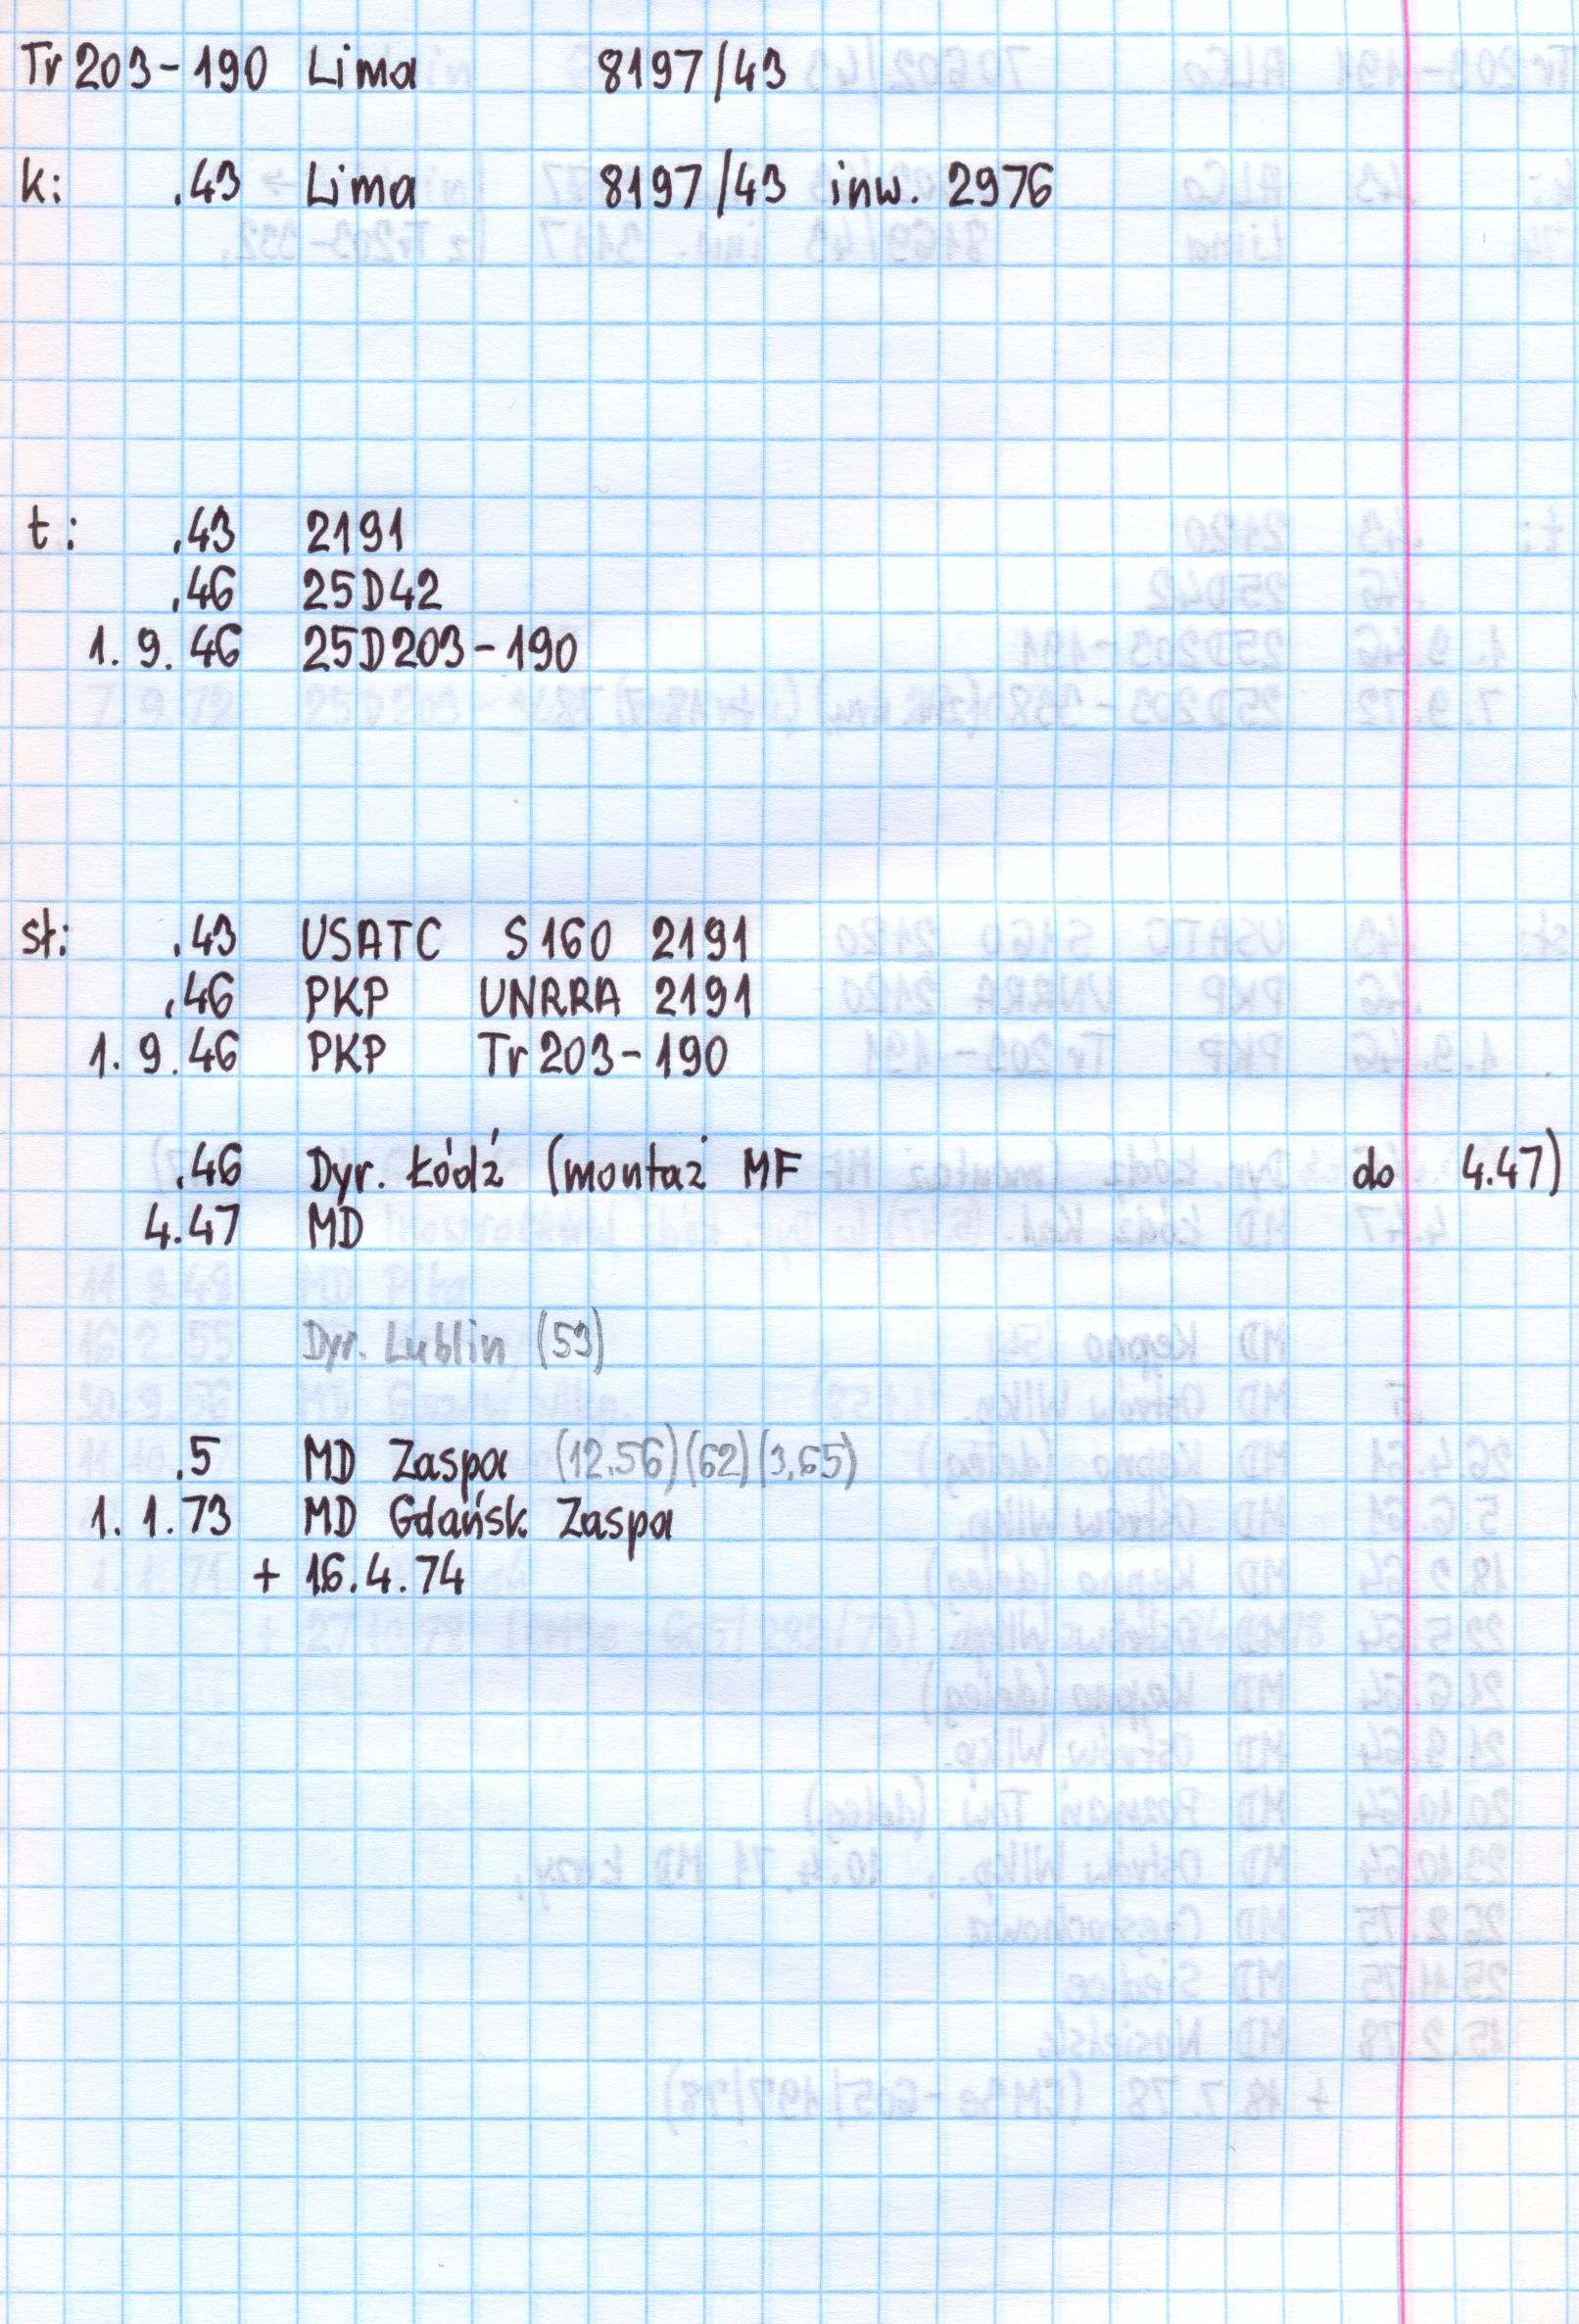 Tr 203-190 Lima 8197/43
k: .43 Lima 8197/43 inw. 2976
t: .43 2191
.46 25D42
1.9.46 25D203-190
st: .43 USATC S160 2191
.46 PKP UNRRA 2191
1.9.46 PKP Tr 203-190
.46 Dyr. Łódź (montaż MF do 4.47)
4.47 MD
Dyr. Lublin (53)
.5 MD Zaspa (12.56) (62) (3.65)
1.1.73 MD Gdańsk Zaspa
+ 16.4.74